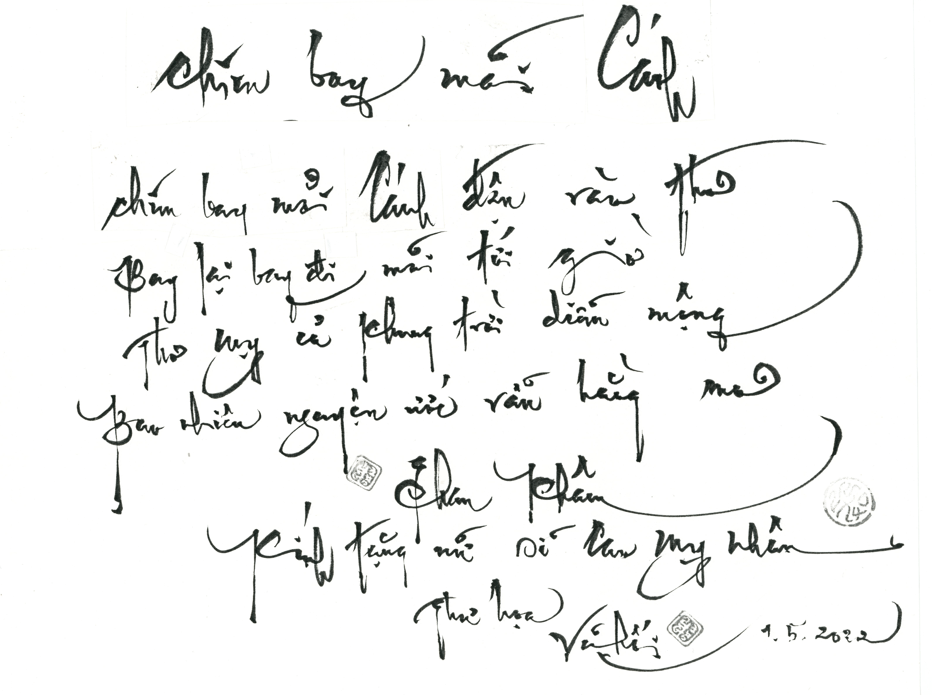 chim bay mỏi Cánh
chim bay mỏi Cánh đậu vần thơ
Bay lại bay đi mãi tới giờ
Thơ mỹ cả khung trời diễn mộng
Bao nhiêu nguyện ước vẫn hằng mơ
Kính tặng nữ sĩ Cao Mỵ Nhân
Thư họa
1.5.2022